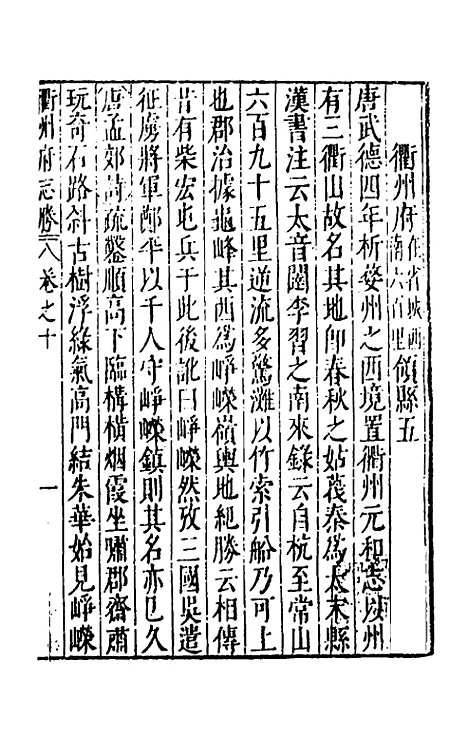 衢州府在省城西南六百里領縣五
唐武德四年析婺州之西境置衢州元和志以州
有三衢山故名其地即春秋之姑蔑秦爲太末縣
漢書注云太音闥李習之南來錄云自杭至常山
六百九十五里逆流多驚灘以竹索引船乃可上
也郡治據龜峰其西爲崢嶸嶺輿地紀勝云相傳
昔有柴宏屯兵于此後訛曰崢嶸然攷三國吳遣
征虜將軍鄭平以千人守崢嶸鎮則其名亦已久
唐孟郊詩疏鑿順高下臨構橫烟霞坐嘯郡齋肅
玩奇石路斜古樹浮綠氣高門結朱華始見崢嶸
衢州府志勝八卷之十 一